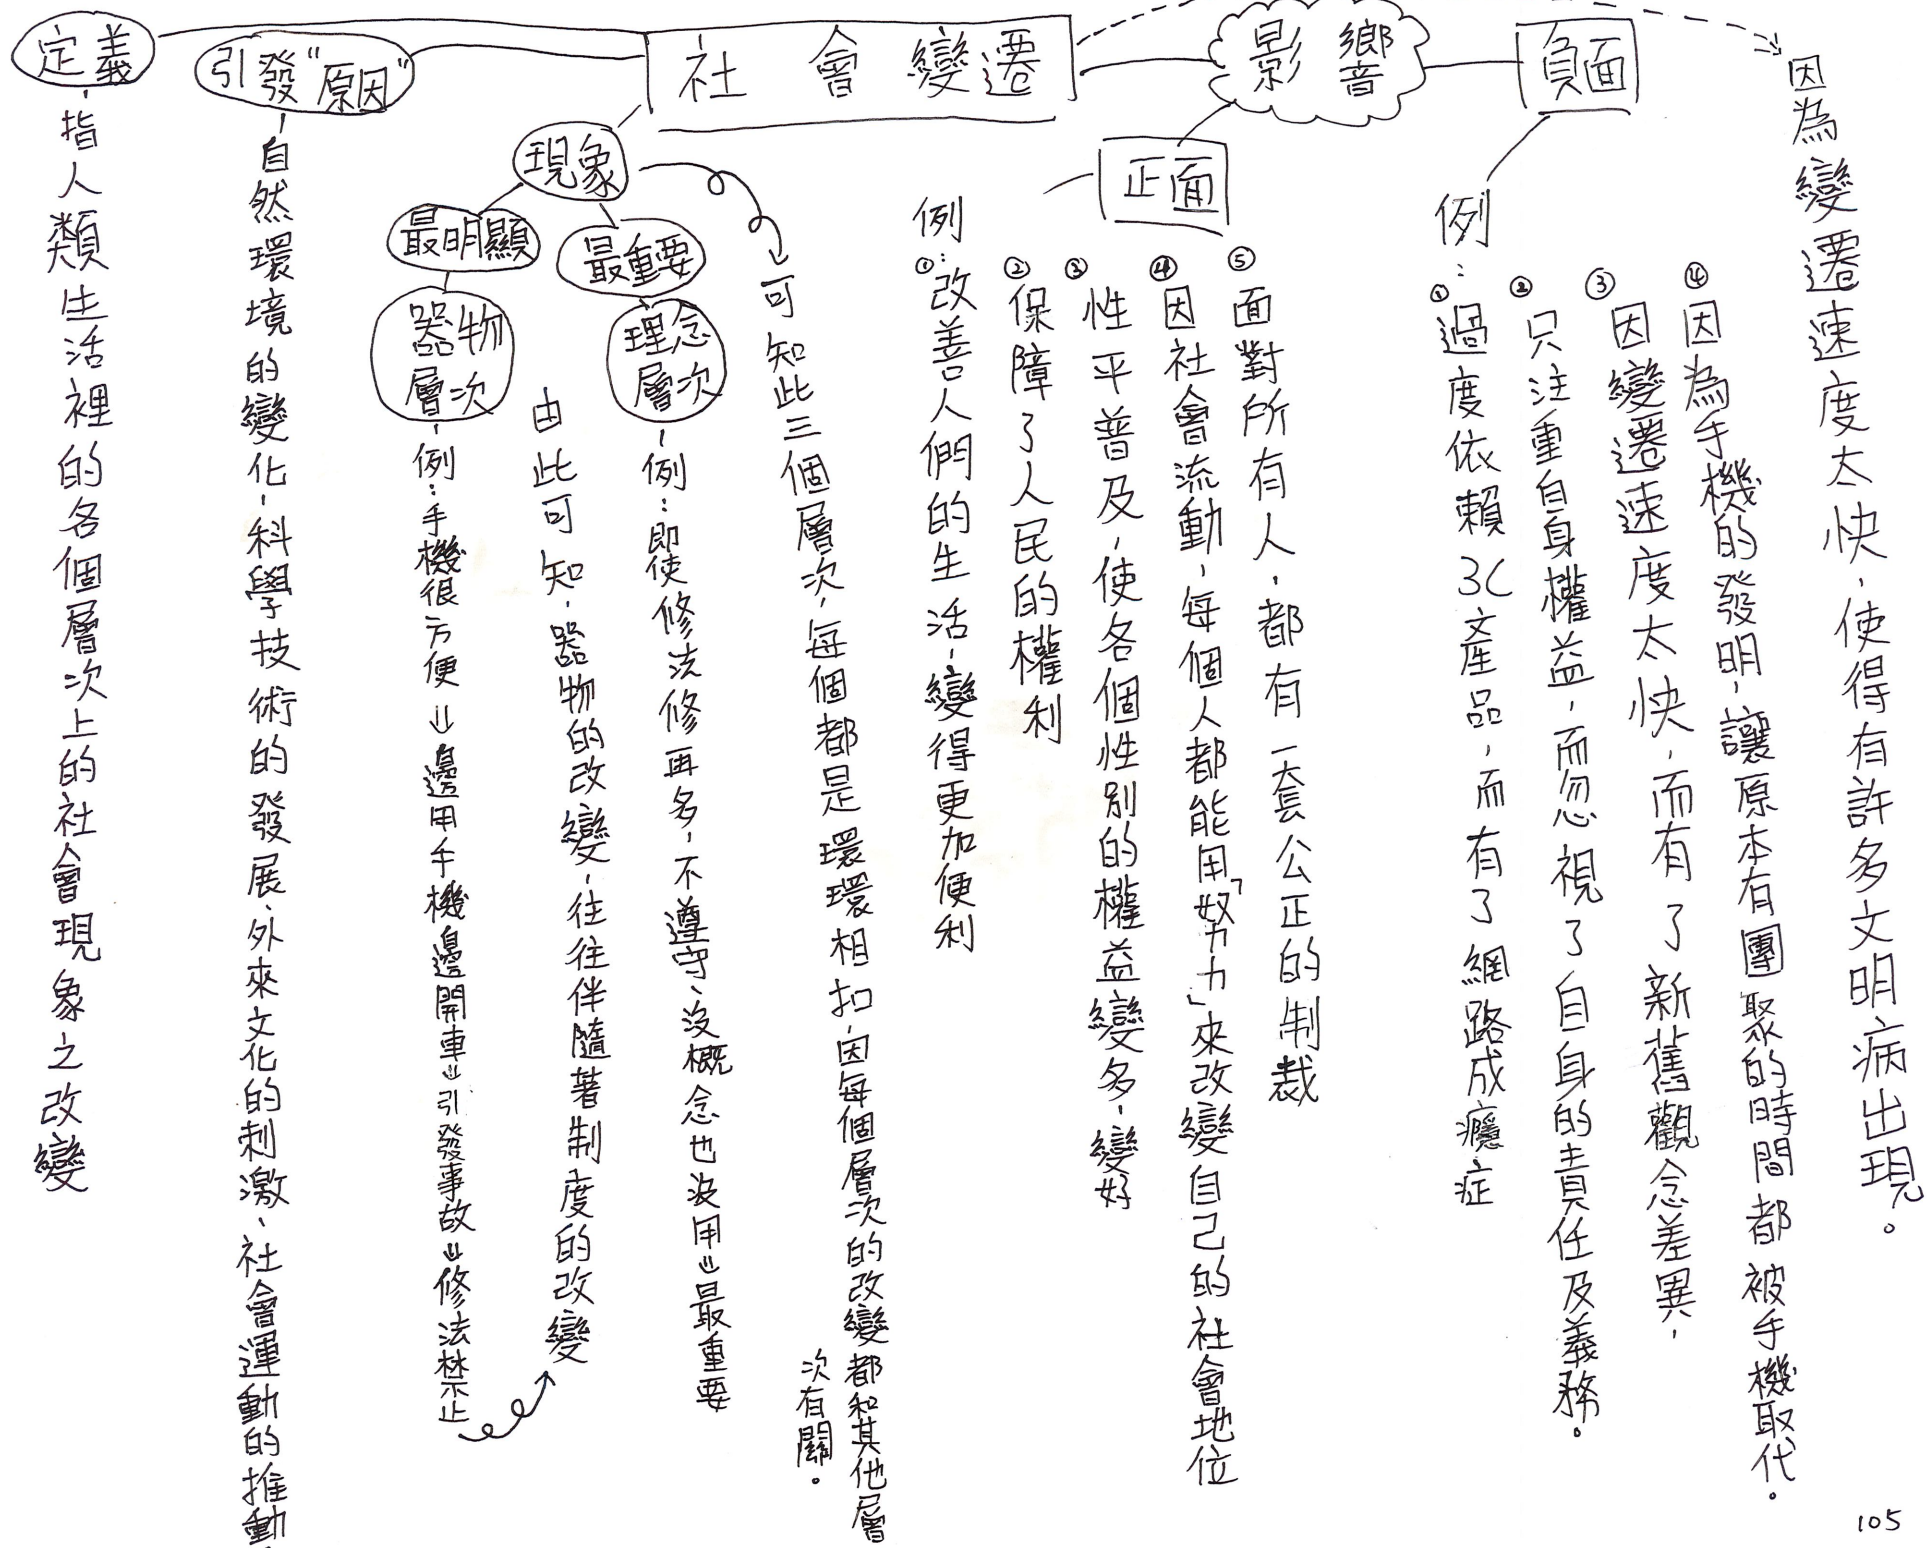 社會變遷
定義
指人類生活裡的各個層次上的社會現象之改變
引發"原因"
自然環境的變化、科學技術的發展、外來文化的刺激、社會運動的推動
現象
最明顯
器物
層次
例:手機很方便⇒邊用手機邊開車⇒引發事故⇒修法禁止
由此可知,器物的改變,往往伴隨著制度的改變
最重要
理念
層次
例:即使修法修再多,不遵守、沒概念也沒用⇒最重要
可知此三個層次,每個都是環環相扣,因每個層次的改變都和其他層
次有關。
影響
正面
例:
①改善人們的生活,變得更加便利
②保障了人民的權利
③性平普及,使各個性別的權益變多,變好
④因社會流動,每個人都能用「努力」來改變自己的社會地位
⑤面對所有人,都有一套公正的制裁
負面
例:
①過度依賴3C產品,而有了網路成癮症
②只注重自身權益,而忽視了自身的責任及義務。
③因變遷速度太快,而有了新舊觀念差異,
④因為手機的發明,讓原本有團聚的時間都被手機取代。
因為變遷速度太快,使得有許多文明病出現。
105